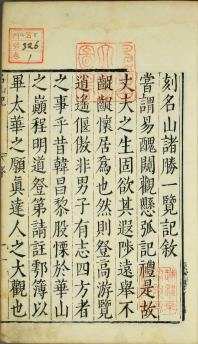 刻名山諸勝一覽記敘
嘗謂易醜闚觀懸弧記禮是故
丈夫之生固欲其遐陟遠舉不
齷齪懷居為也然則登高遊覽
逍遙偃傲非男子有志四方者
之事乎昔韓昌黎股慄於華山
之巔程明道登第請註鄠簿以
畢太華之願真達人之大觀也
326
1